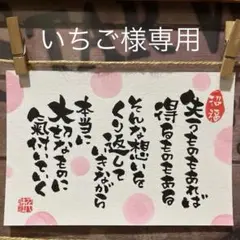 いちご様専用
招福
失うものもあれば
得るものもある
そんな想いを
くり返して
いきながら
本当に
大切なものに
氣付いていく